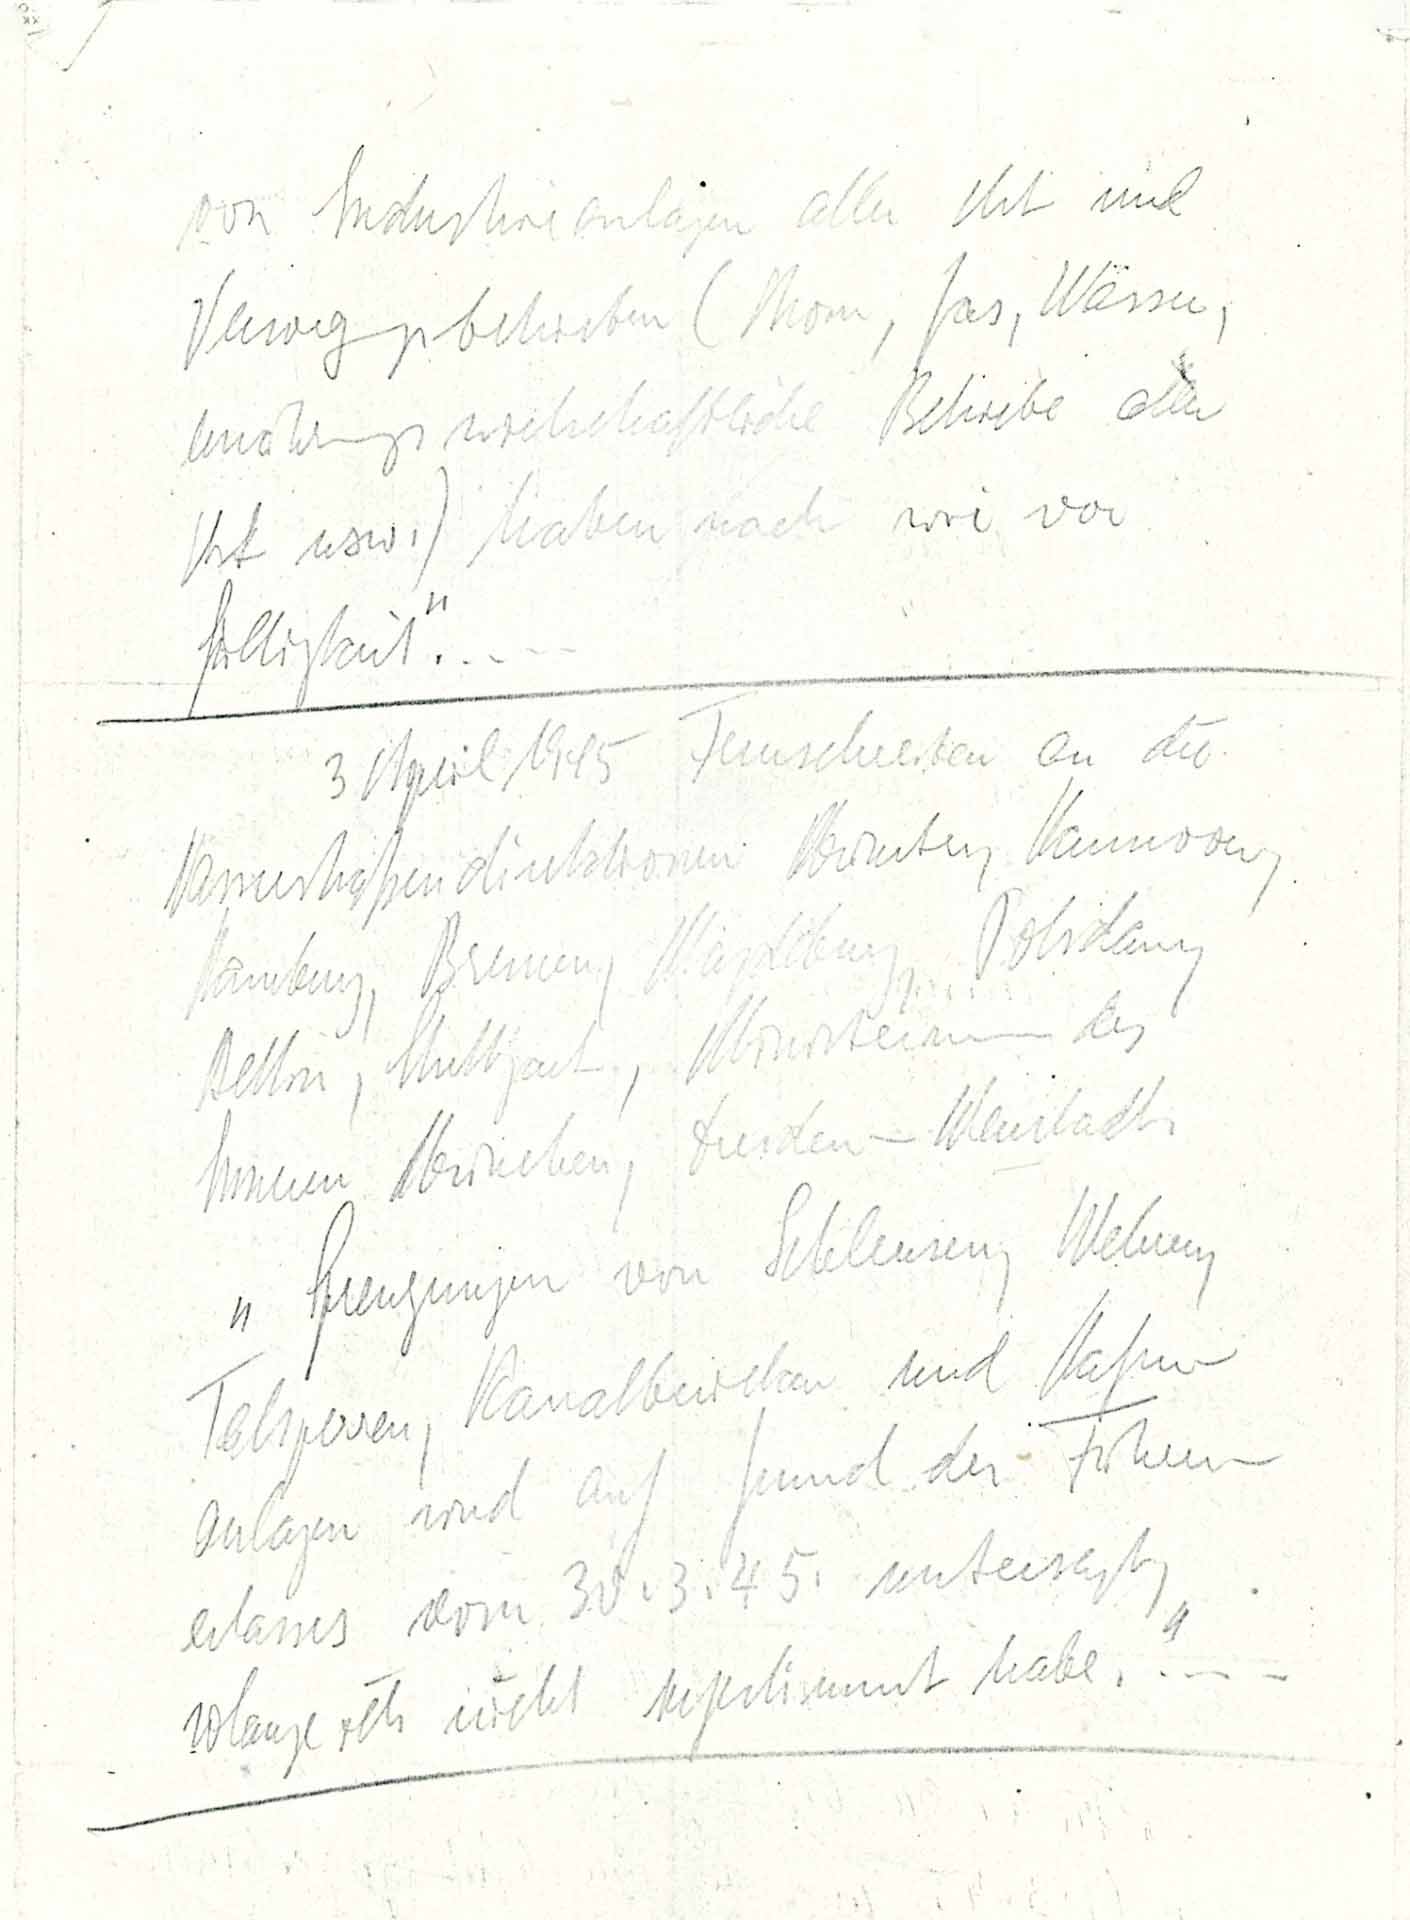 von Industrieanlagen aller Art und
Versorgungsbetrieben (Strom, Gas, Wasser,
ernährungswirtschaftliche Betriebe aller
Art usw.) haben nach wie vor
Gültigkeit".----
3 April 1945 Fernschreiben an die
Wasserstraßendirektionen Münster, Hannover,
Hamburg, Bremen, Magdeburg, Potsdam,
Berlin, Stuttgart, Ministerium des
Inneren München, Dresden-
"Sprengungen von Schleusen, Wehren,
Talsperren, Kanalbrücken und Hafen-
anlagen sind auf Grund des Führer-
erlasses vom 30.3.45. untersagt,
solange ich nicht zugestimmt habe."---